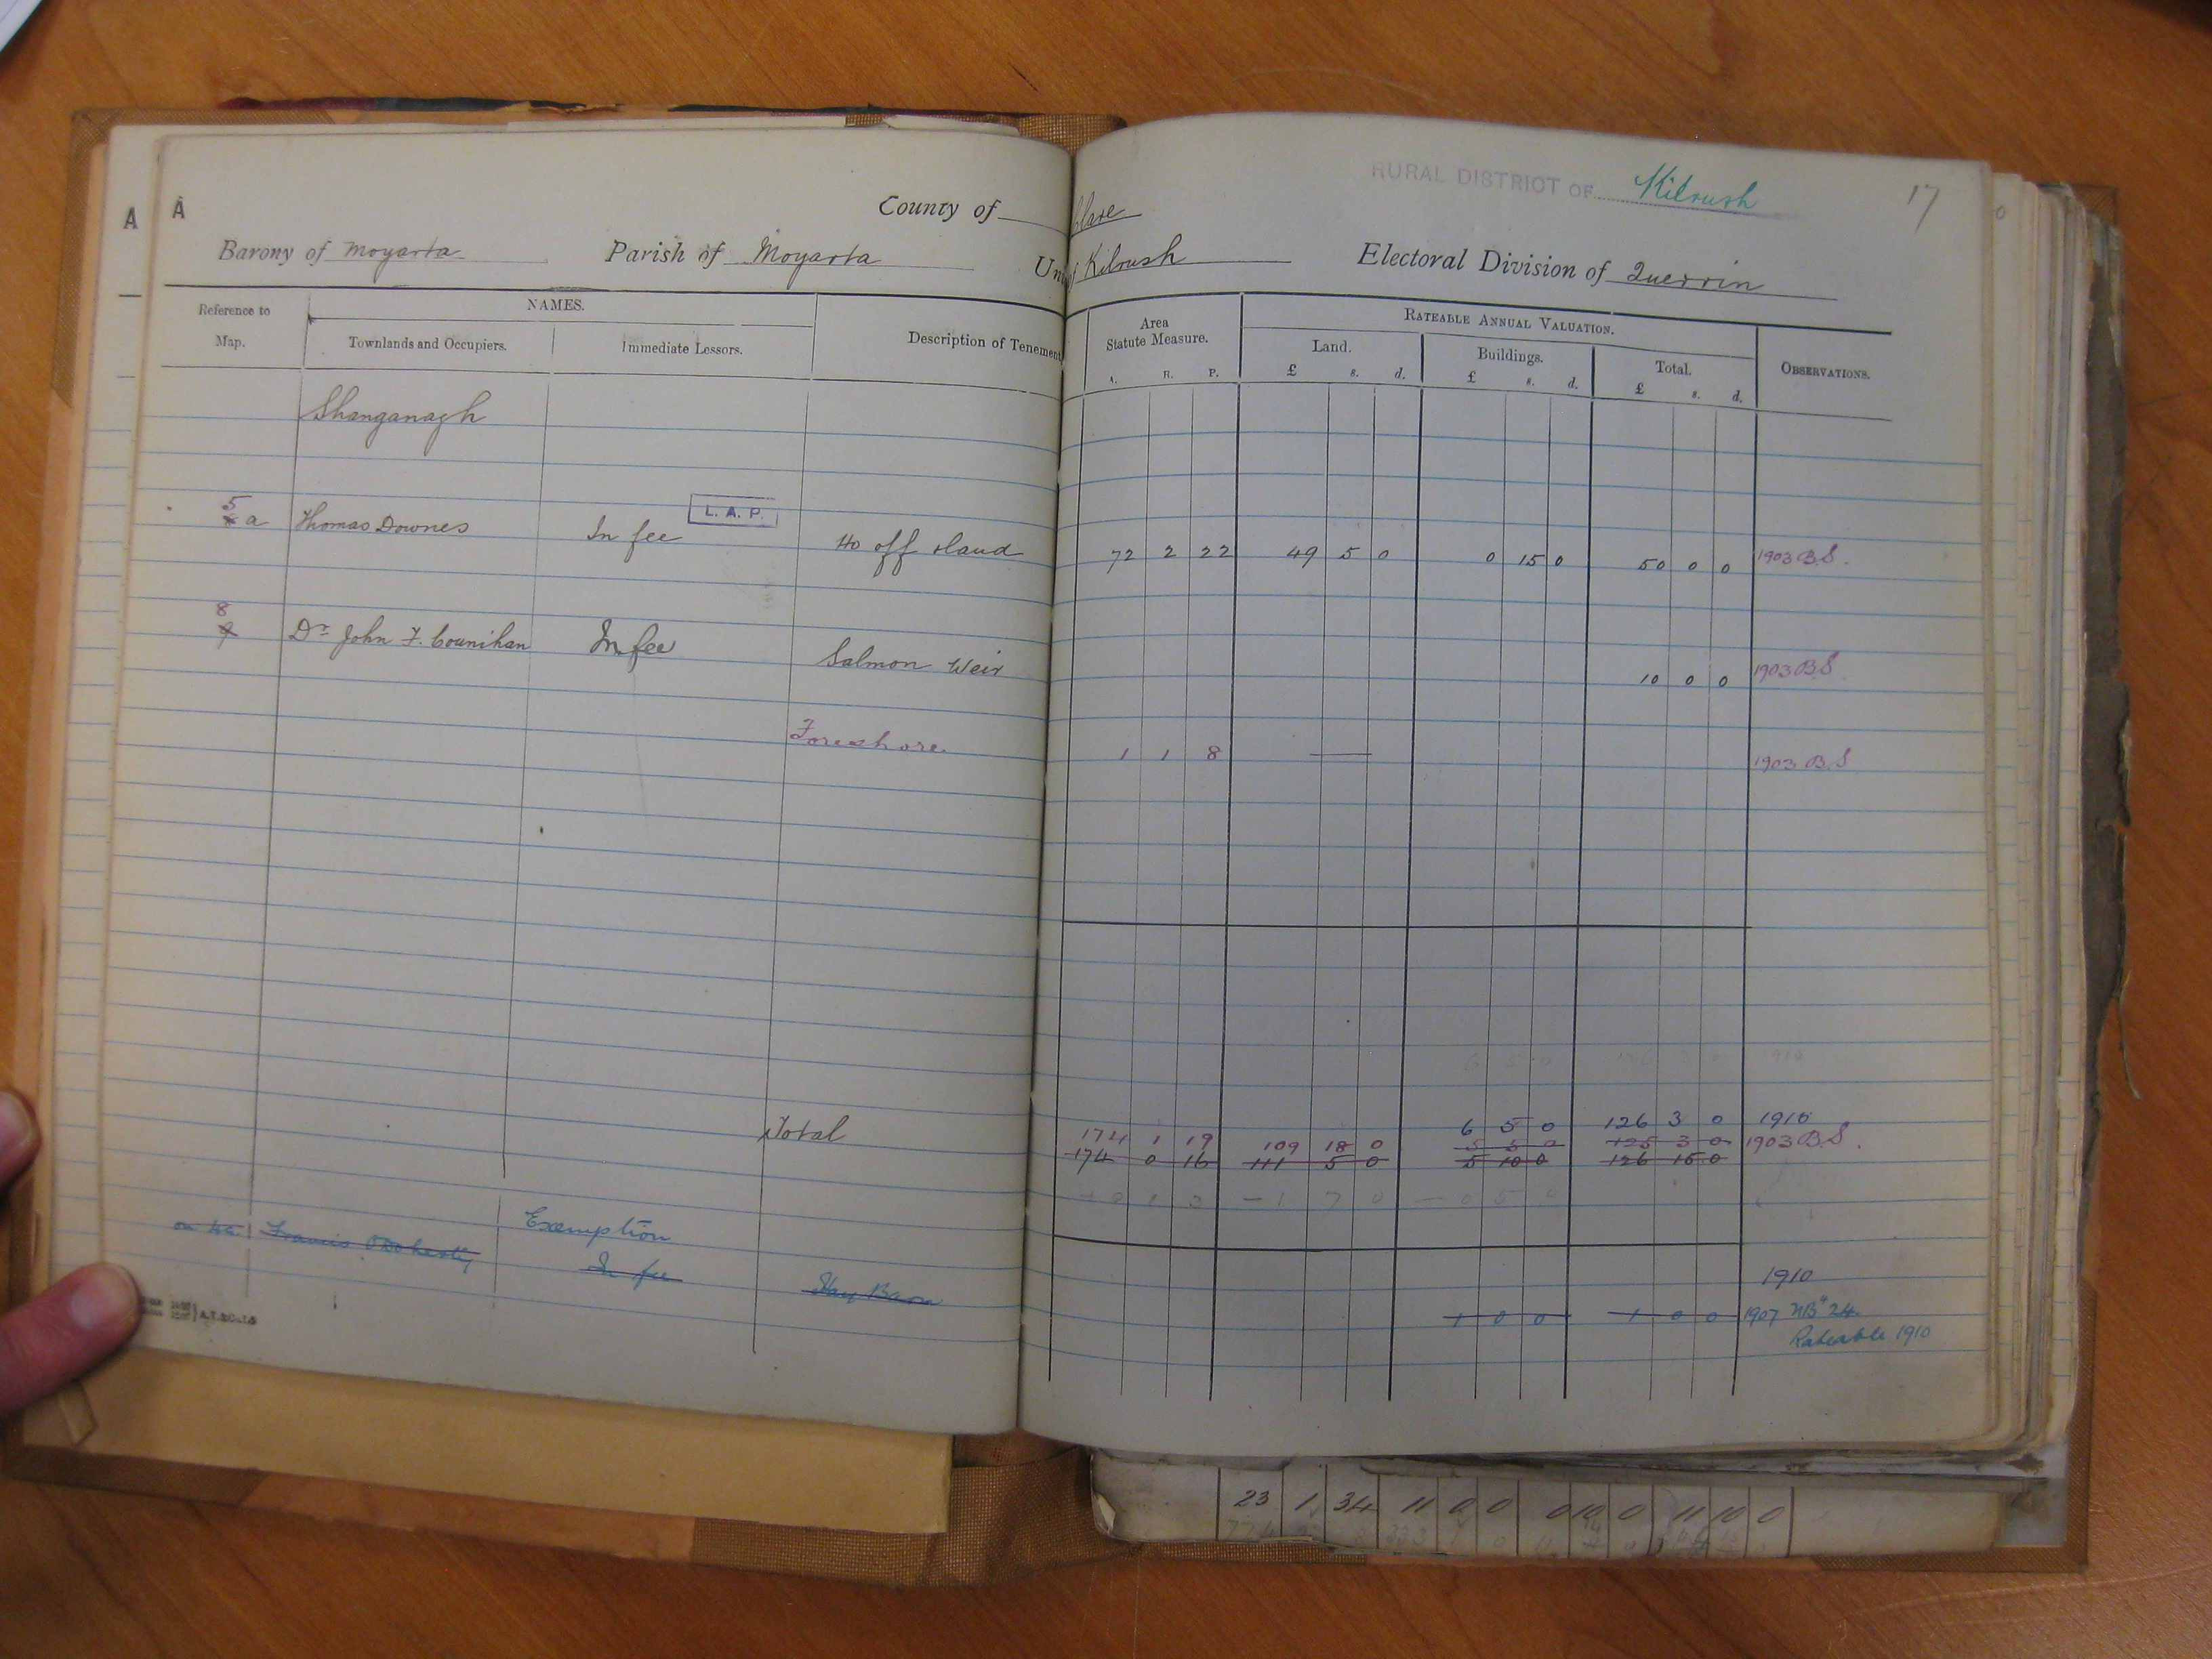 RURAL DISTRICT OF Kilrush 17
A A County of Clare
Barony of Moyarta Parish of Moyarta Un of Kilrush Electoral Division of Querrin
Reference to Map. NAMES. Description of Tenement Area Statute Measure. RATEABLE ANNUAL VALUATION. OBSERVATIONS.
Townlands and Occupiers. Immediate Lessors. Land. Buildings. Total.
A. R. P. £ s. d. £ s. d. £ s. d.
Shanganagh
5 a Thomas Downes In fee L. A. P. Ho off & land 72 2 22 49 5 0 0 15 0 50 0 0 1903 B S.
8
9 Dr John F. Counihan In fee Salmon Weir 10 0 0 1903 B S
Foreshore 1 1 8 — 1903 B S
6 5 0 126 3 0 1910
Total 174 1 19 109 18 0 5 5 0 125 3 0 1903 B S.
174 0 16 111 5 0 5 10 0 126 15 0
+ 0 1 3 — 1 7 0 — 0 5 0
Exemption
on 4a Francis O'Doherty In fee Hay Barn 1910
1 0 0 1 0 0 1907 NB" 24.
Rateable 1910
23 1 34 11 0 0 0 10 0 11 10 0